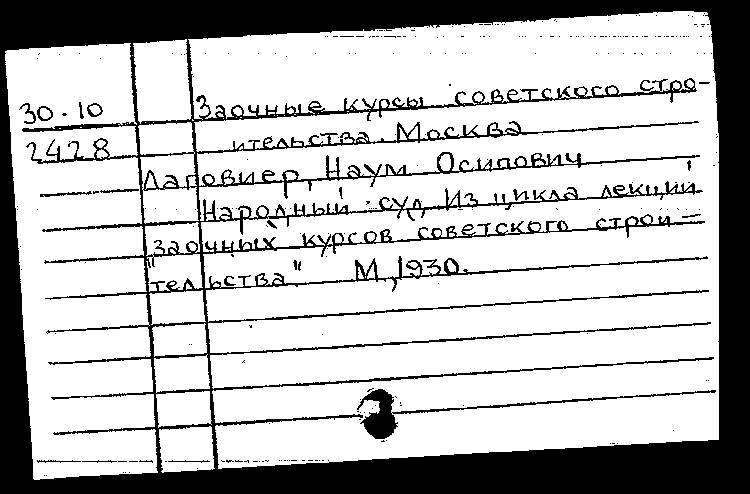 30.10
2428
Заочные курсы советского стро-
ительства. Москва
Лаговиер, Наум Осипович
Народный суд. Из цикла лекций
"Заочных курсов советского строи-
тельства" М, 1930.